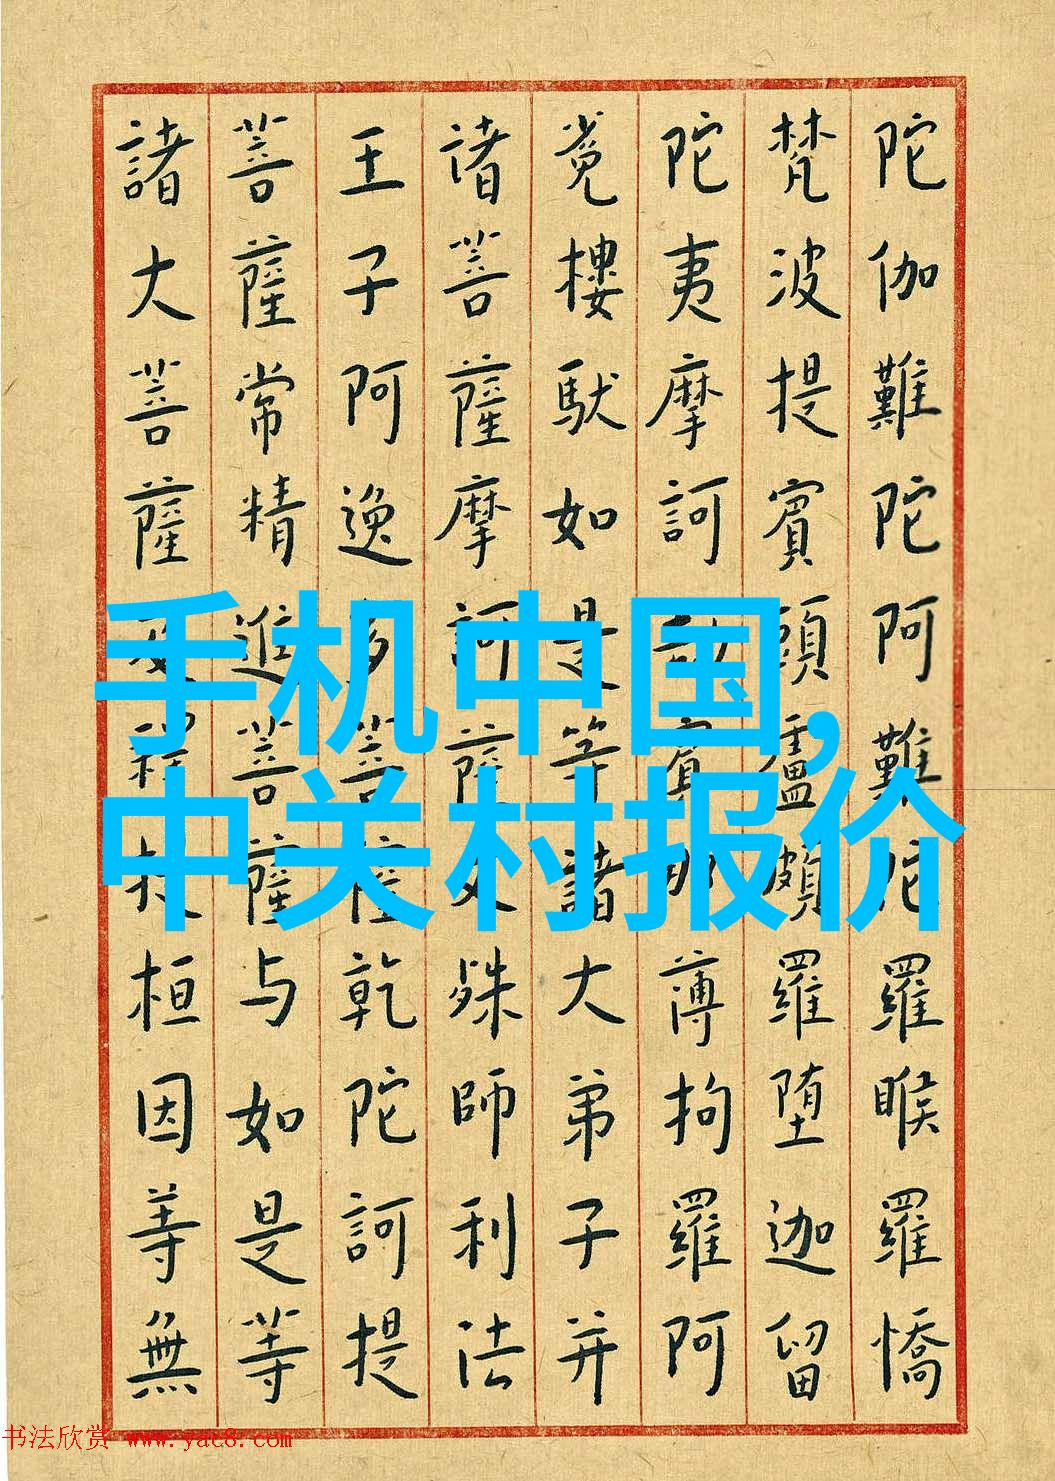 陀伽難陀阿難陀羅睺羅憍
梵波提賓頭盧頗羅堕迦留
陀夷摩訶劫賓那薄拘羅阿
㝹樓馱如是等諸大弟子并
诸菩薩摩訶薩文殊師利法
王子阿逸多菩薩乾陀訶提
菩薩常精進菩薩与如是等
諸大菩薩及釋提桓因等無
手机中国,
中关村报价
书法欣赏 www.yac8.com